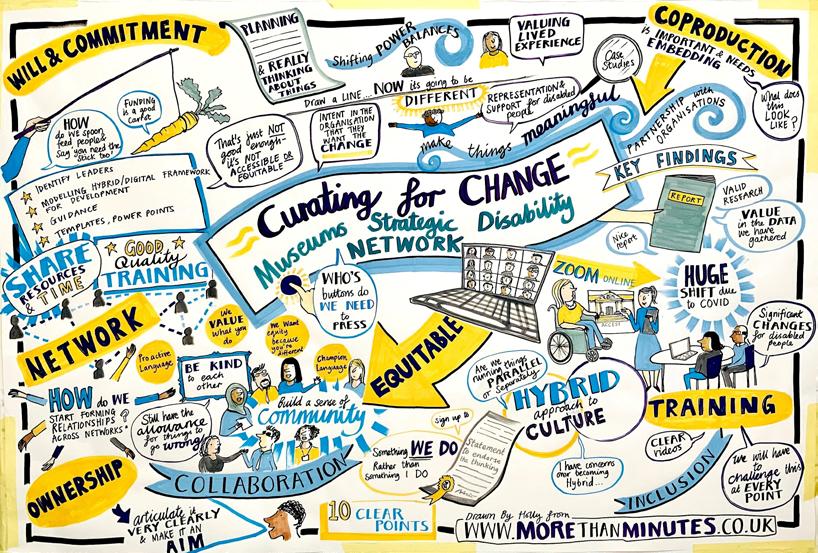 WILL & COMMITMENT
PLANNING
& REALLY
THINKING
ABOUT
THINGS
Shifting POWER
BALANCES
VALUING
LIVED
EXPERIENCE
Case
Studies
COPRODUCTION
is IMPORTANT & NEEDS
EMBEDDING
What does
this
LOOK
LIKE?
HOW
do we spoon
feed people &
Say you need the
stick too!
FUNDING
is a good
Carrot
Draw a LINE...
NOW its going to be
DIFFERENT
REPRESENTATION &
SUPPORT for disabled
people
make things meaningful
PARTNERSHIP with
ORGANISATIONS
That's just NOT
good enough-
it's NOT
ACCESSIBLE OR
EQUITABLE
INTENT IN THE
ORGANISATION
THAT THEY
WANT THE
CHANGE
IDENTIFY LEADERS
MODELLING HYBRID/DIGITAL FRAMEWORK
FOR DEVELOPMENT
GUIDANCE
TEMPLATES, POWER POINTS
Curating for CHANGE
Museums Strategic Disability
NETWORK
KEY FINDINGS
REPORT
VALID
RESEARCH
VALUE
in the DATA
we have
gathered
Nice
report
SHARE
RESOURCES
& TIME
GOOD
Quality
TRAINING
WHO'S
buttons do
WE NEED
to
PRESS
ZOOM ONLINE
ACCESS
HUGE
SHIFT due
to COVID
Significant
CHANGES
for disabled
people
NETWORK
We
VALUE
what you
do
We Want
equity
because
you're
different
Proactive
Language
BE KIND
to each
other
Champion
Language
EQUITABLE
Are we
running things
PARALLEL
or Separately
HYBRID
approach to
CULTURE
TRAINING
HOW do WE
START FORMING
RELATIONSHIPS
ACROSS NETWORKS?
Still have the
allowance
for things to
go wrong!
Build a sense of
Community
Sign up to
Statement
to endorse
the thinking
Something WE DO
Rather than
Something I DO
I have concerns
over becoming
Hybrid...
CLEAR
videos
INCLUSION
We will have
to
challenge this
at EVERY
POINT
COLLABORATION
OWNERSHIP
articulate it
VERY CLEARLY
& MAKE IT AN
AIM
10 CLEAR
POINTS
Drawn By Holly from
WWW.MORETHANMINUTES.CO.UK